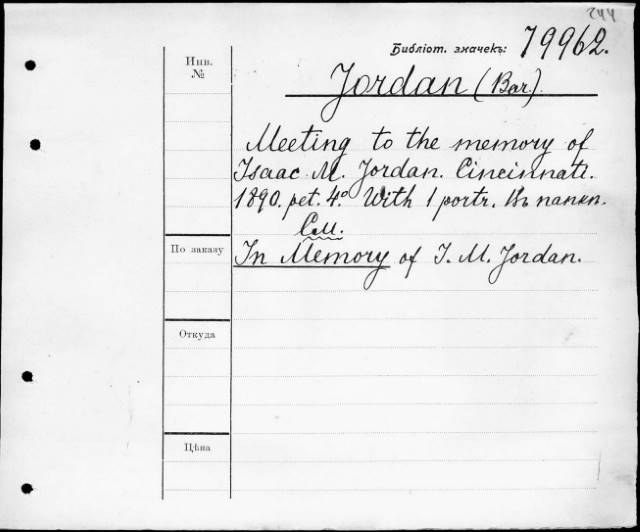 244
Библіот. значекъ: 79962.
Инв.
№
Jordan (Bar).
Meeting to the memory of
Isaac M. Jordan. Cincinnati.
1890. pet. 4º With 1 portr. Въ папкѣ.
См.
По заказу
In Memory of I. M. Jordan.
Откуда
Цѣна